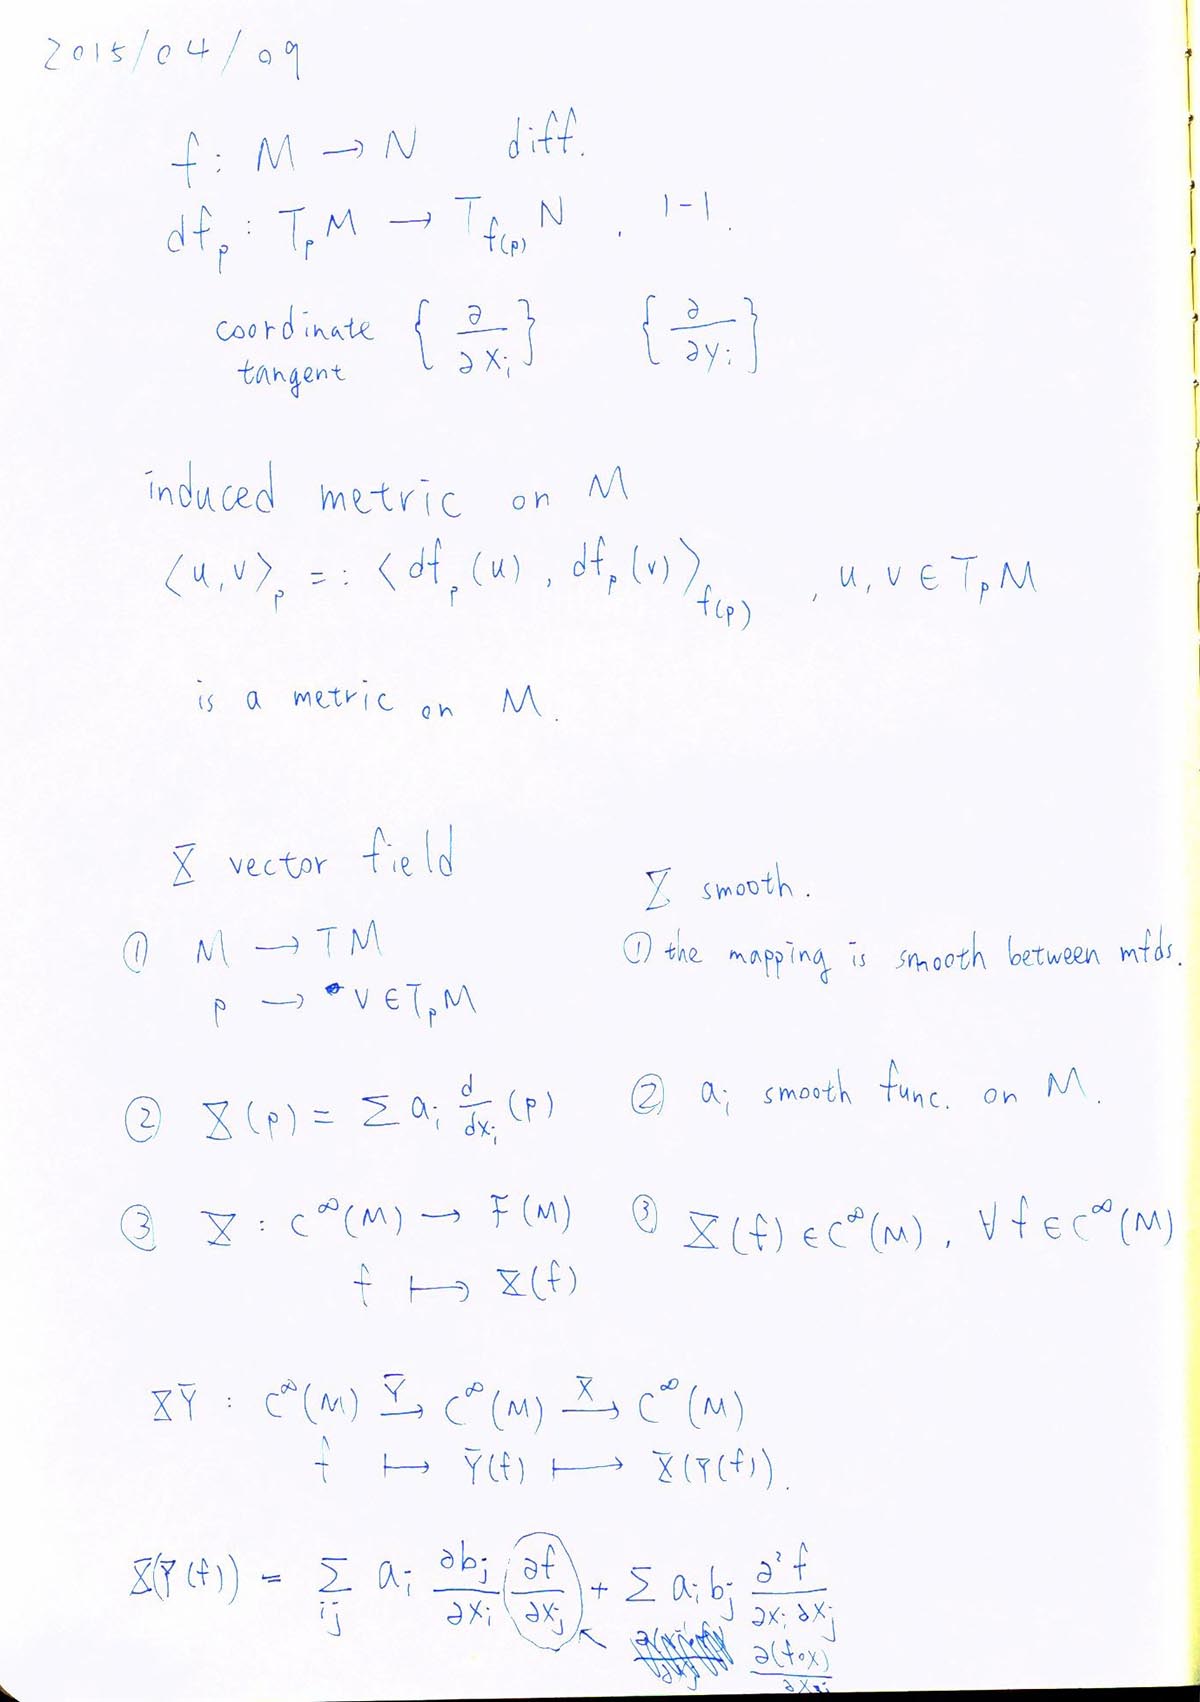 2015/04/09
f : M → N diff.
df_p : T_p M → T_{f(p)} N . 1-1.
coordinate { ∂/∂x_i } { ∂/∂y_i }
tangent
induced metric on M
⟨u,v⟩_p =: ⟨df_p(u), df_p(v)⟩_{f(p)} , u, v ∈ T_p M
is a metric on M.
X vector field
X smooth.
① M → TM
① the mapping is smooth between mfds.
p → v ∈ T_p M
② X(p) = Σ a_i d/dx_i (p)
② a_i smooth func. on M.
③ X : C^∞(M) → F(M)
③ X(f) ∈ C^∞(M), ∀ f ∈ C^∞(M)
f ↦ X(f)
XY : C^∞(M) →^Y C^∞(M) →^X C^∞(M)
f ↦ Y(f) ↦ X(Y(f)).
X(Y(f)) = Σ_{ij} a_i ∂b_j/∂x_i ∂f/∂x_j + Σ a_i b_j ∂²f/∂x_i ∂x_j
∂(f∘x)/∂x_i